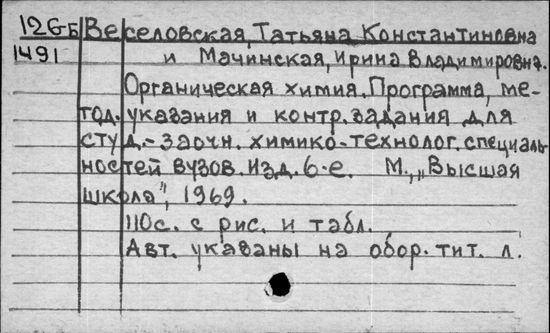 12G-Б Веселовская, Татьяна Константиновна
1491 и Мачинская, Ирина Владимировна.
Органическая химия. Программа, ме-
тод. указания и контр. задания для
студ.-заочн. химико-технолог. специаль-
ностей вузов. Изд. 6-е. М., „Высшая
школа", 1969.
110с. с рис. и табл.
Авт. указаны на обор. тит. л.